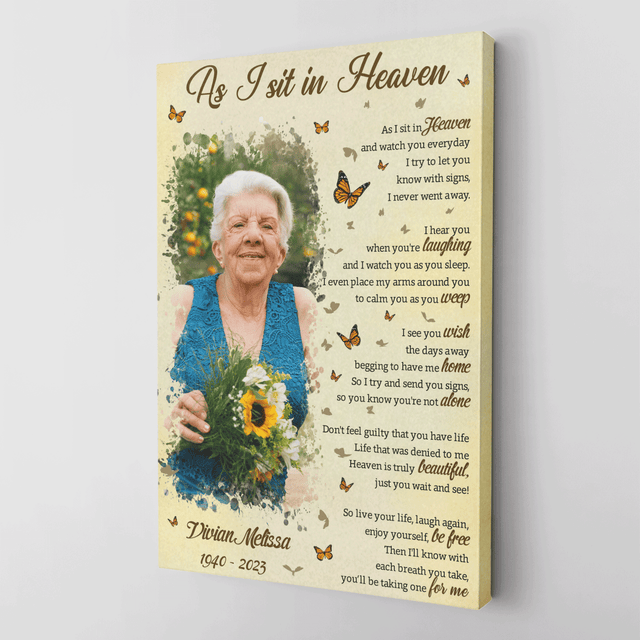 As I sit in Heaven
As I sit in Heaven
and watch you everyday
I try to let you
know with signs,
I never went away.
I hear you
when you're laughing
and I watch you as you sleep.
I even place my arms around you
to calm you as you weep
I see you wish
the days away
begging to have me home
So I try and send you signs,
so you know you're not alone
Don't feel guilty that you have life
Life that was denied to me
Heaven is truly beautiful,
just you wait and see!
So live your life, laugh again,
enjoy yourself, be free
Then I'll know with
each breath you take,
you'll be taking one for me
Vivian Melissa
1940 - 2023